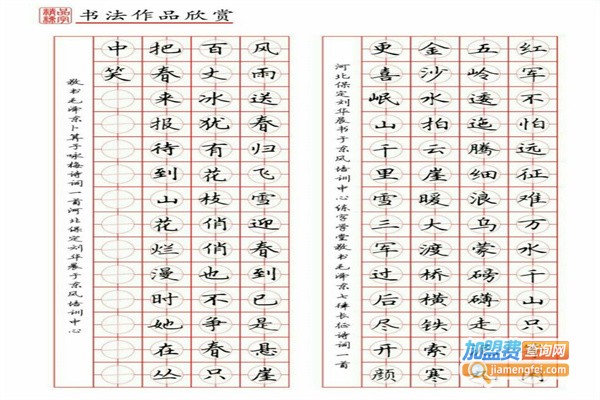 精品练字
书法作品欣赏
红军不怕远征难万水千山只
五岭逶迤腾细浪乌蒙磅礴走
金沙水拍云崖暖大渡桥横铁索寒
更喜岷山千里雪三军过后尽开颜
河北保定刘华展书于东风培训中心练字学堂敬书毛泽东七律长征诗词一首
风雨送春归飞雪迎春到已是悬崖
百丈冰犹有花枝俏俏也不争春只
把春来报待到山花烂漫时她在丛
中笑
敬书毛泽东卜算子咏梅诗词一首河北保定刘华展于东风培训中心
加盟费查询网
jiamengfei.com